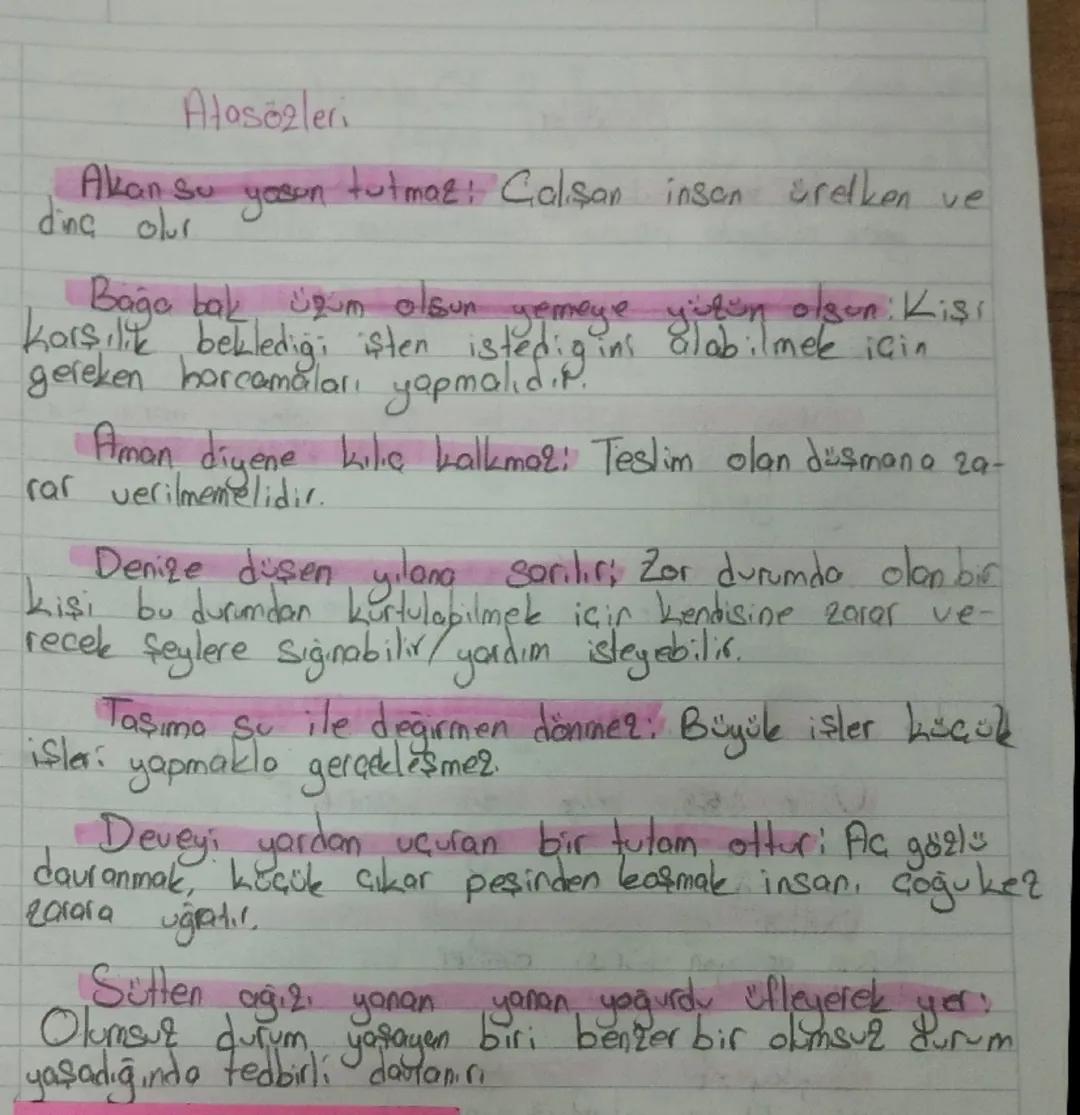 Atasözleri
Akan su yosun tutmaz: Çalışan insan üretken ve
dinç olur
Bağa bak üzüm olsun yemeye yüzün olsun: Kişi
karşılık beklediği işten istediğini alabilmek için
gereken harcamaları yapmalıdır.
Aman diyene kılıç kalkmaz: Teslim olan düşmana za-
rar verilmemelidir.
Denize düşen yılana sarılır: Zor durumda olan bir
kişi bu durumdan kurtulabilmek için kendisine zarar ve-
recek şeylere sığınabilir/yardım isteyebilir.
Taşıma su ile değirmen dönmez: Büyük işler küçük
işleri yapmakla gerçekleşmez.
Deveyi yardan uçuran bir tutam ottur: Aç gözlü
davranmak, küçük çıkar peşinden koşmak insanı çoğu kez
zarara uğratır.
Sütten ağızı yanan yanan yoğurdu üfleyerek yer:
Olumsuz durum yaşayan biri benzer bir olumsuz durum
yaşadığında tedbirli davranır.